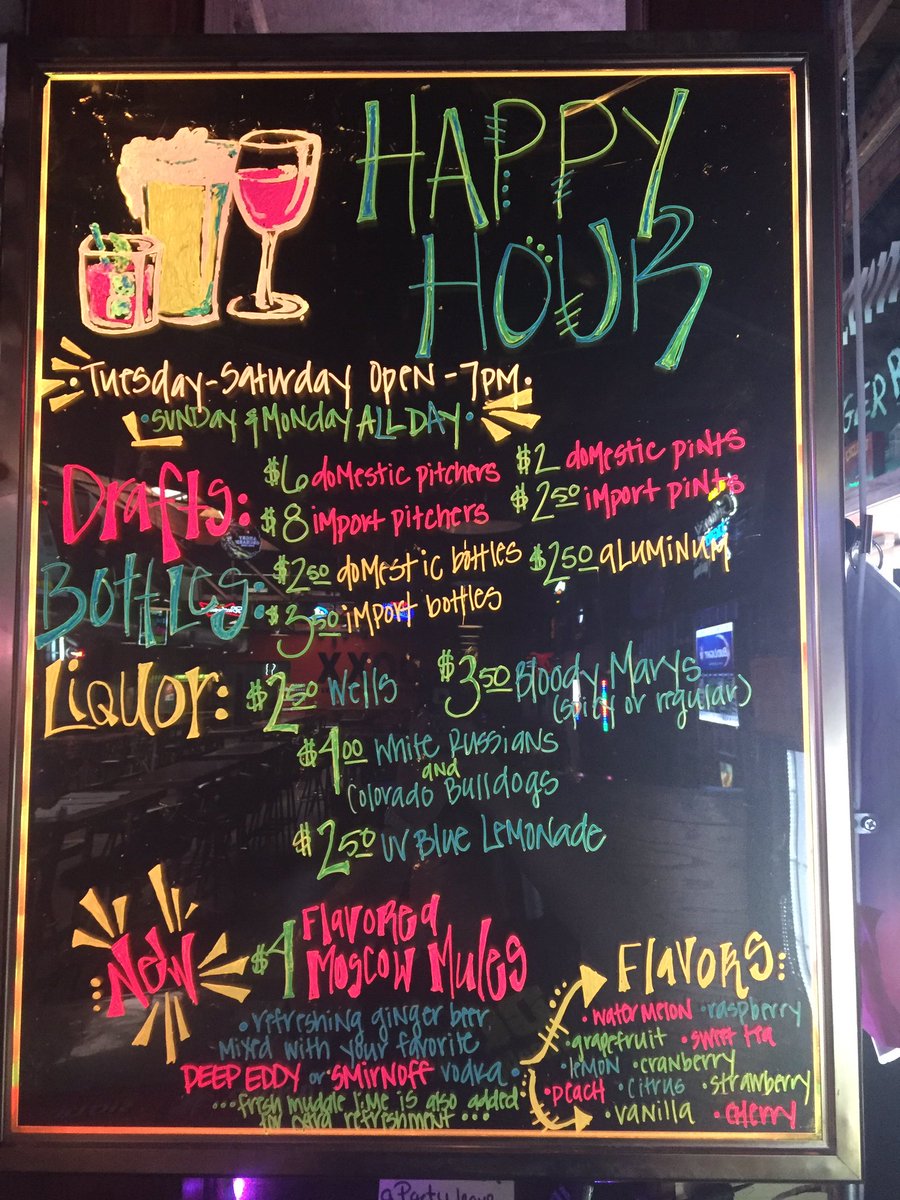 HAPPY
HOUR
Tuesday-Saturday open-7pm.
Sunday & Monday ALL DAY
Drafts: $6 domestic pitchers $2 domestic pints
$8 import pitchers $2.50 import pints
Bottles: $2.50 domestic bottles $2.50 aluminum
$3.50 import bottles
Liquor: $2.50 Wells $3.50 Bloody Marys
(spicy or regular)
$4.00 White Russians
and
Colorado Bulldogs
$2.50 UV Blue Lemonade
New $4 Flavored
Moscow Mules
• refreshing ginger beer
mixed with your favorite
DEEP EDDY or SMIRNOFF vodka.
...fresh muddle lime is also added
for extra refreshment...
Flavors:
• watermelon • raspberry
• grapefruit • sweet tea
• lemon • cranberry
• peach • citrus • strawberry
• vanilla • cherry
BUD LIGHT
GER B
a Party